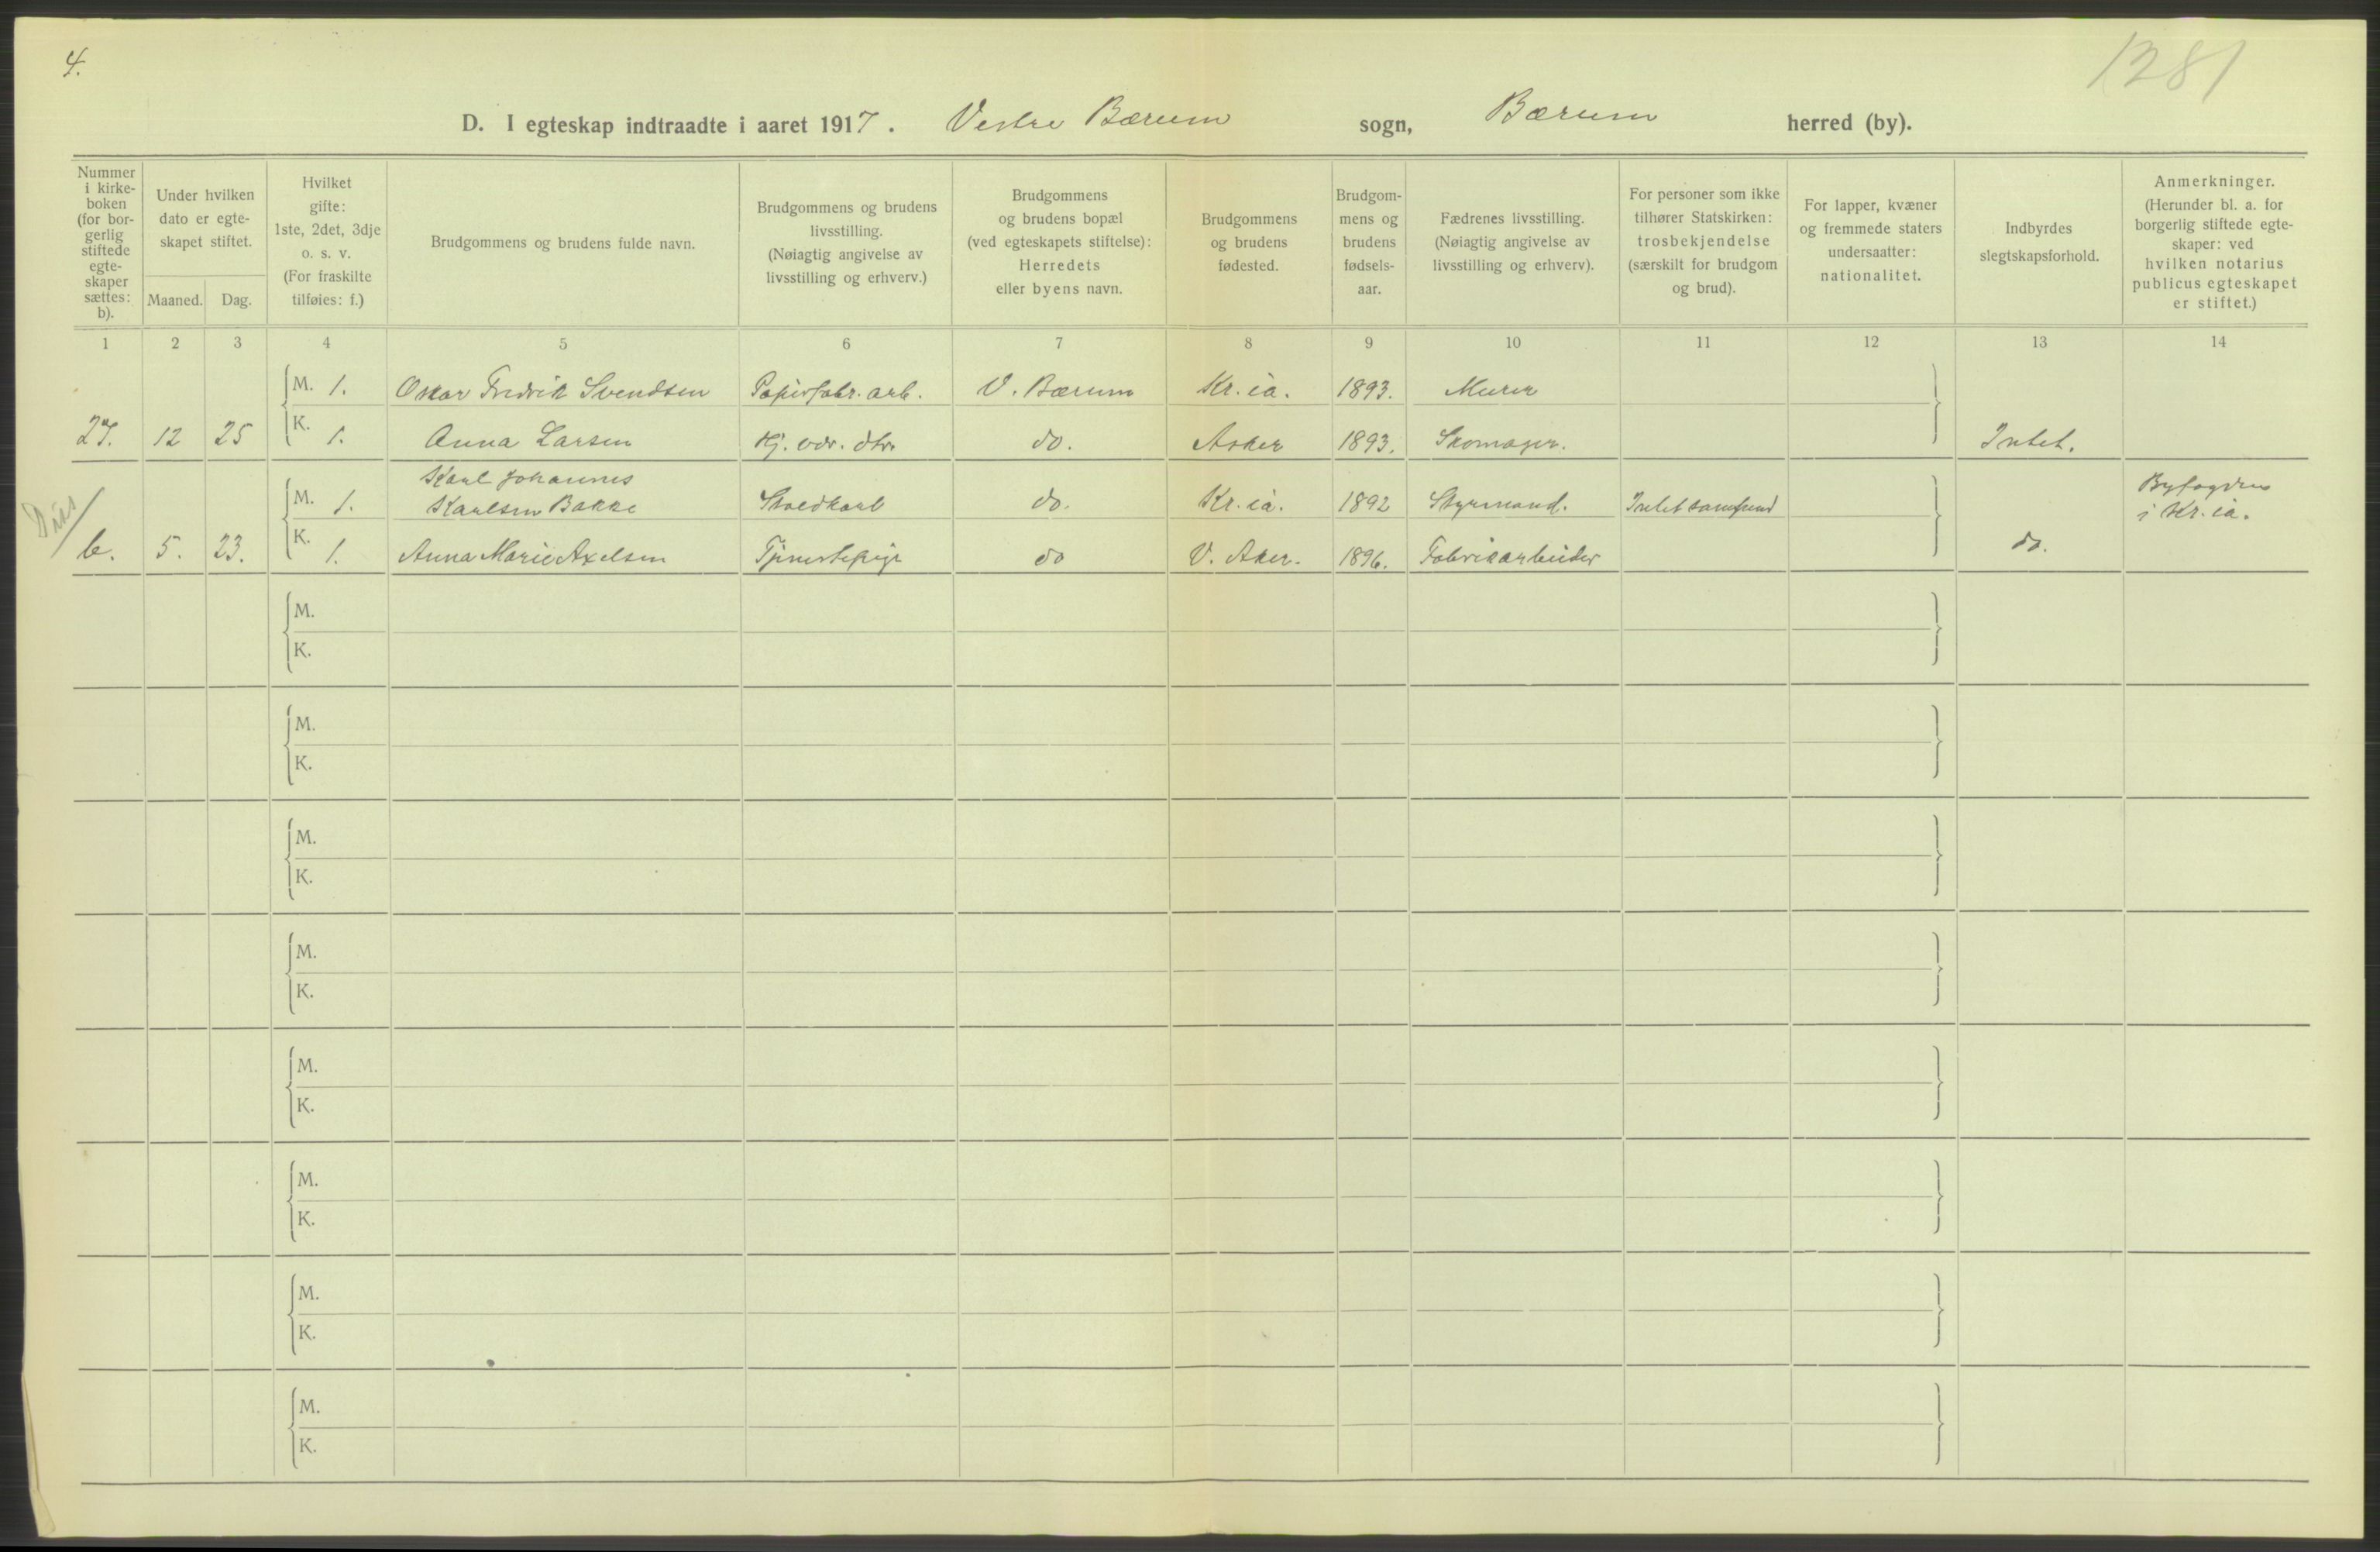 4.
1281
D. I egteskap indtraadte i aaret 1917. Vestre Bærum sogn, Bærum herred (by).
Nummer i kirke-boken (for bor-gerlig stiftede egte-skaper sættes: b).
Under hvilken dato er egte-skapet stiftet.
Maaned. Dag.
Hvilket gifte: 1ste, 2det, 3dje o. s. v. (For fraskilte tilføies: f.)
Brudgommens og brudens fulde navn.
Brudgommens og brudens livsstilling. (Nøiagtig angivelse av livsstilling og erhverv.)
Brudgommens og brudens bopæl (ved egteskapets stiftelse): Herredets eller byens navn.
Brudgommens og brudens fødested.
Brudgom-mens og brudens fødsels-aar.
Fædrenes livsstilling. (Nøiagtig angivelse av livsstilling og erhverv).
For personer som ikke tilhører Statskirken: trosbekjendelse (særskilt for brudgom og brud).
For lapper, kvæner og fremmede staters undersaatter: nationalitet.
Indbyrdes slegtskapsforhold.
Anmerkninger. (Herunder bl. a. for borgerlig stiftede egte-skaper: ved hvilken notarius publicus egteskapet er stiftet.)
1 2 3 4 5 6 7 8 9 10 11 12 13 14
M. 1. Oskar Fredrik Svendsen Papirfabr. arb. V. Bærum Kr.ia. 1893. Murer
27. 12 25 K. 1. Anna Larsen Gj. do. Asker 1893. Skomager. Intet.
Karl Johannes
M. 1. Karlsen Bakke Staldkarl do. Kr.ia. 1892 Styrmand. Intet samfund Byfogden
i Kr.ia.
b. 5. 23. K. 1. Anna Marie Axelsen Tjenestepige do V. Aker. 1896. Fabrikarbeider do.
M.
K.
M.
K.
M.
K.
M.
K.
M.
K.
M.
K.
M.
K.
M.
K.